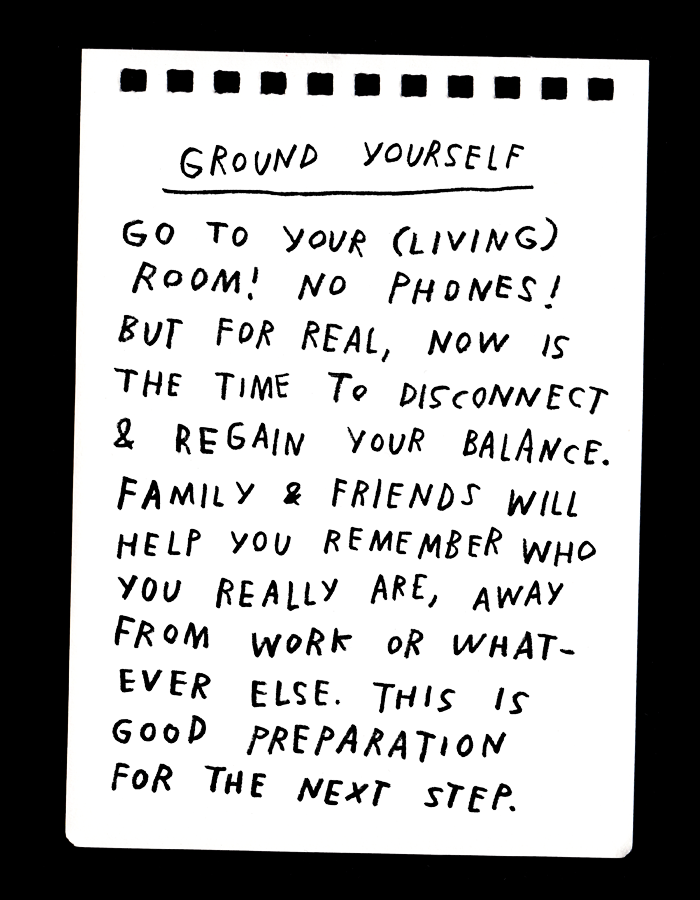 GROUND YOURSELF
GO TO YOUR (LIVING)
ROOM! NO PHONES!
BUT FOR REAL, NOW IS
THE TIME To DISCONNECT
& REGAIN YOUR BALANCE.
FAMILY & FRIENDS WILL
HELP YOU REMEMBER WHO
YOU REALLY ARE, AWAY
FROM WORK OR WHAT-
EVER ELSE. THIS IS
GOOD PREPARATION
FOR THE NEXT STEP.